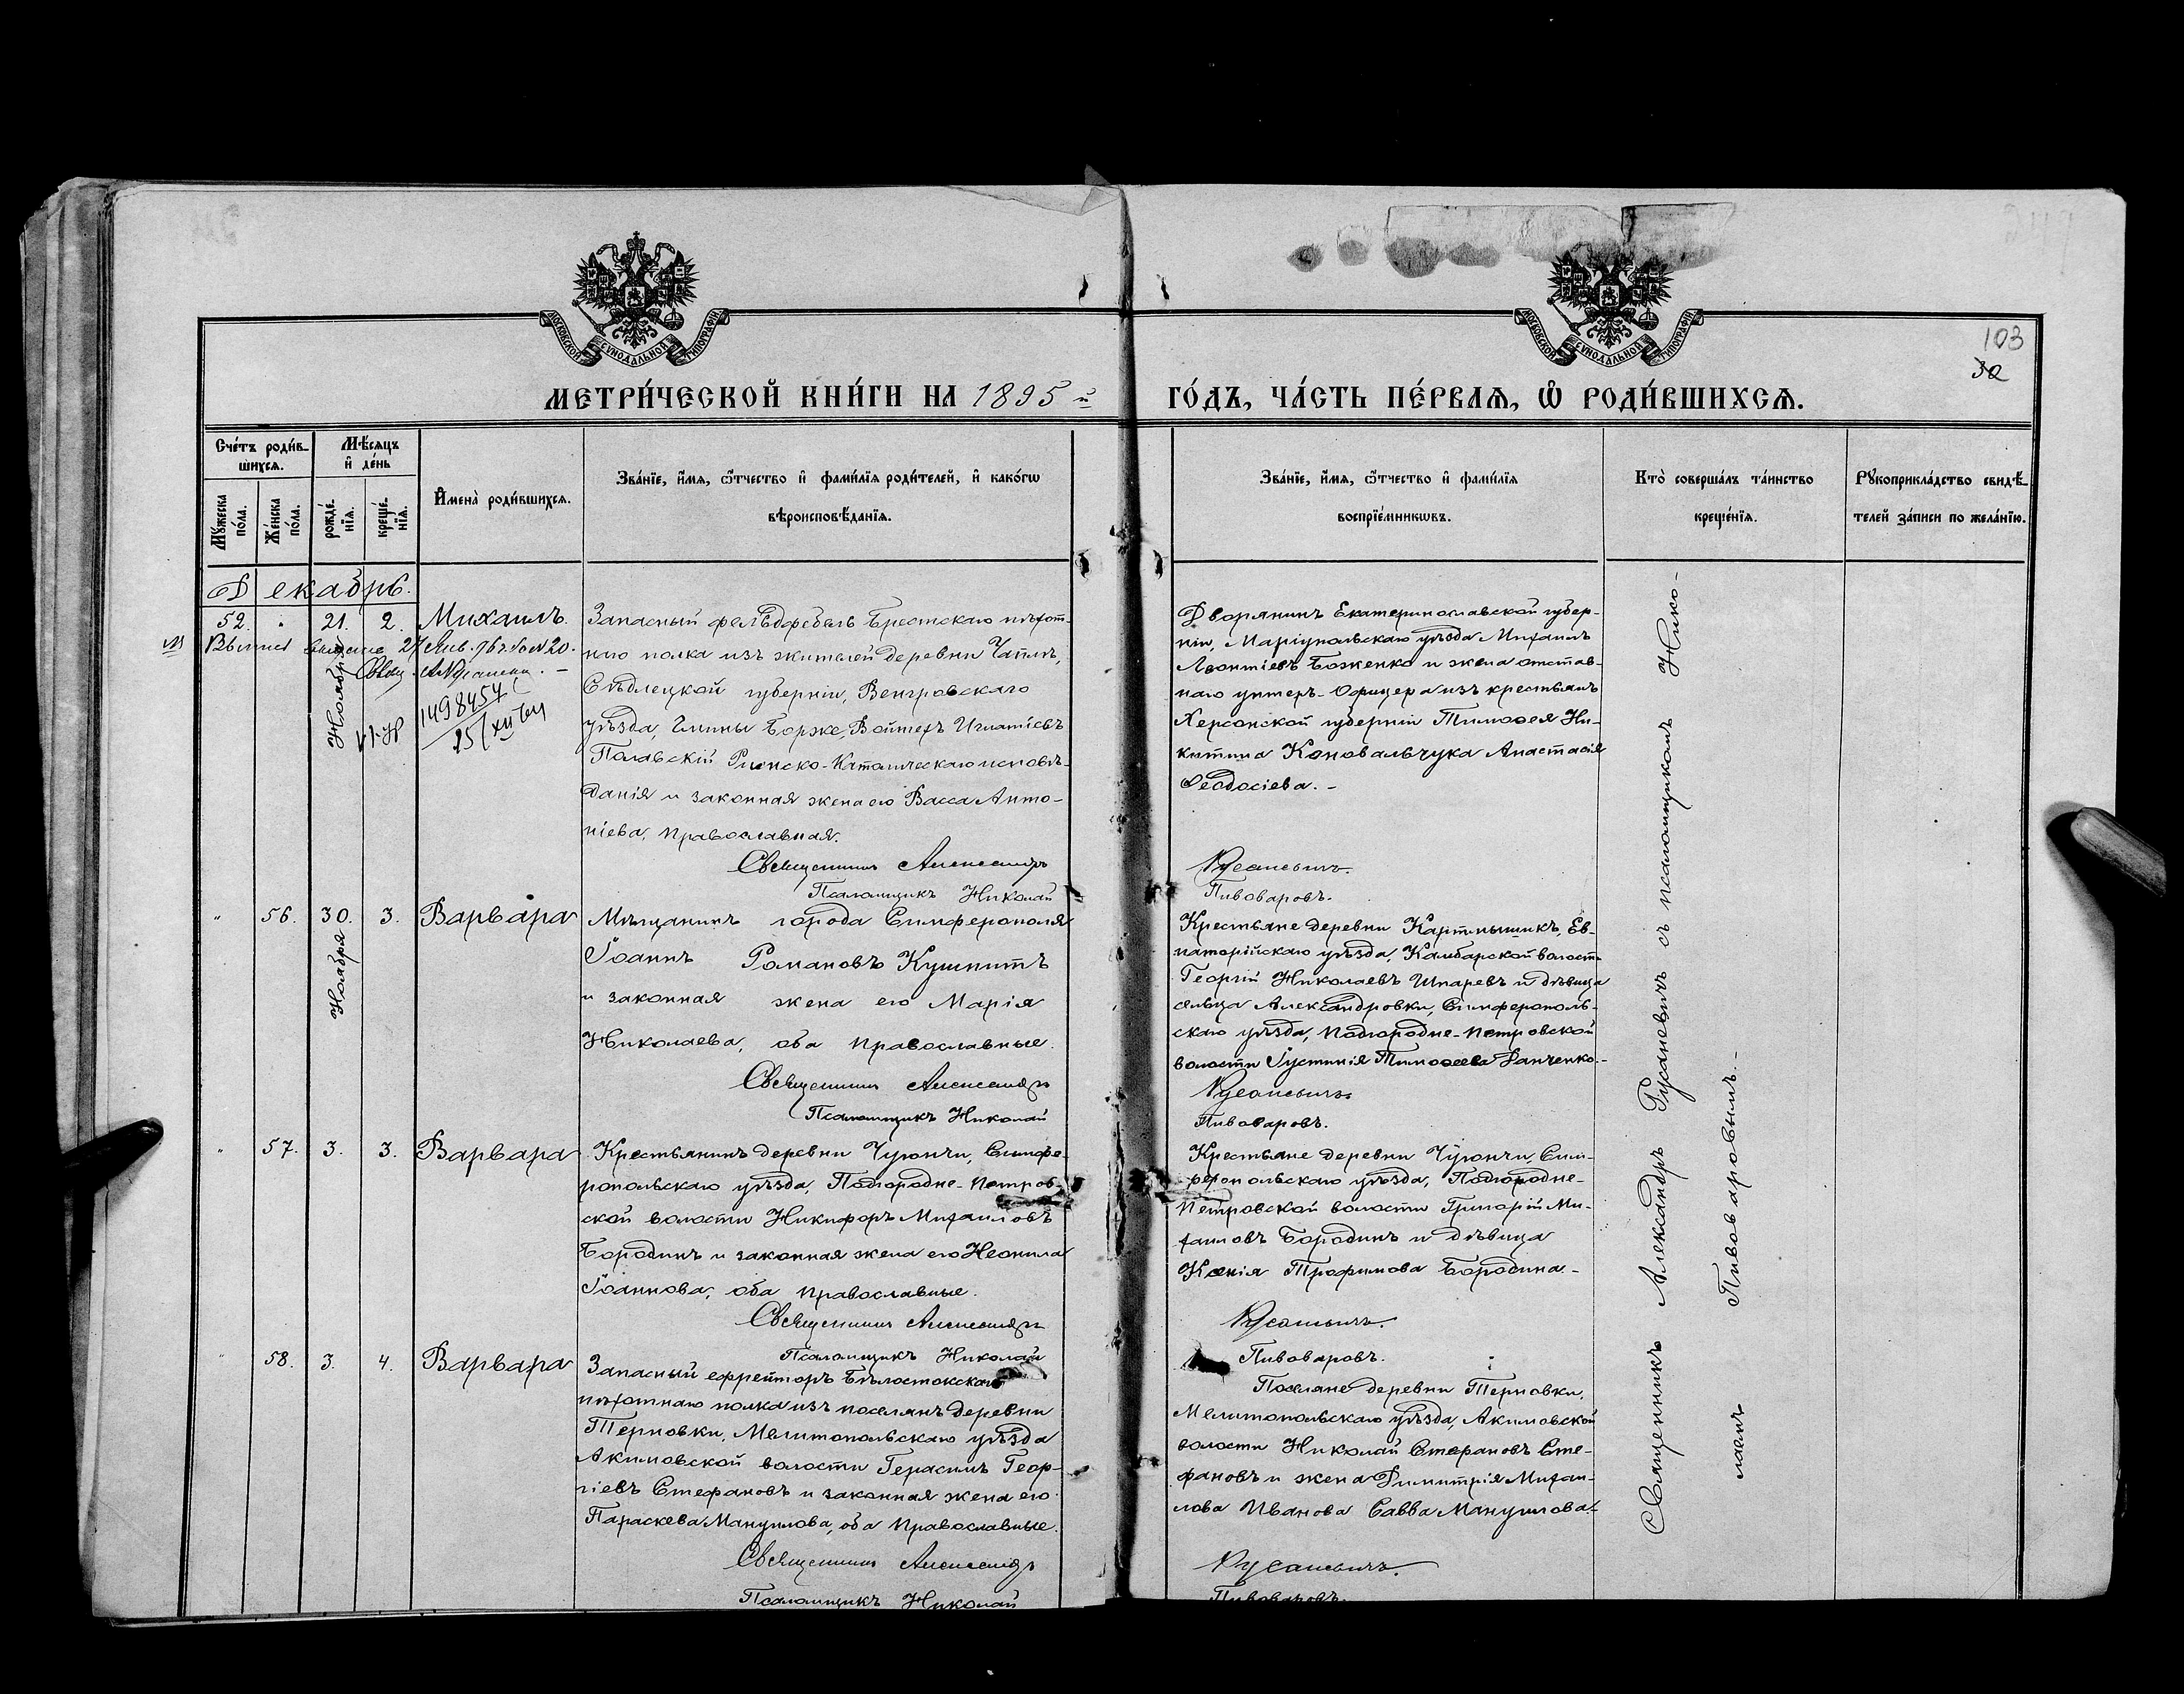 МОСКОВСКОЙ СѴНОДАЛЬНОЙ ТИПОГРАФІИ
МОСКОВСКОЙ СѴНОДАЛЬНОЙ ТИПОГРАФІИ
103
МЕТРИ́ЧЕСКОЙ КНИ́ГИ НА 1895 й
ГО́ДЪ, ЧА́СТЬ ПЕ́РВАѦ, Ѽ РОДИ́ВШИХСѦ.
Сче́тъ роди́в-
шихсѧ.
Мѣ́сѧцъ
и҆ де́нь
Мꙋ́жеска по́ла.
Же́нска по́ла.
рожде́-нїѧ.
креще́-нїѧ.
И҆мена̀ роди́вшихсѧ.
Зва́нїе, и҆́мѧ, ѻ҆́тчество и҆ фами́лїѧ роди́телей, и҆ како́гѡ
вѣроисповѣ́данїѧ.
Зва́нїе, и҆́мѧ, ѻ҆́тчество и҆ фами́лїѧ
воспрїе́мникѡвъ.
Кто̀ соверша́лъ та́инство
креще́нїѧ.
Рꙋкоприкла́дство свидѣ́-
телей за́писи по жела́нїю.
Декабрь.
52. " 21. Ноября 2. Михаилъ.
1498454
Запасный фельдфебель Брестскаго пѣхот-
наго полка изъ жителей деревни
Сѣдлецкой губерніи, Венгровскаго
уѣзда, Гмины Борже, Войтехъ Игнатіевъ
Полавскій Римско-Католическаго исповѣ-
данія и законная жена его Васса Анто-
ніева, православная.
Священникъ Александръ
Псаломщикъ Николай
Дворянинъ Екатеринославской губер-
ніи, Маріупольскаго уѣзда Михаилъ
Леонтіевъ Боженко и жена отстав-
наго унтеръ-офицера изъ крестьянъ
Херсонской губерніи Тимоѳея Ни-
китина Коновальчука Анастасія
Ѳеодосіева. -
Русаневичъ.
Пивоваровъ.
" 56. 30. Ноября 3. Варвара
Мѣщанинъ города Симферополя
Іоаннъ Романовъ Кушнитъ
и законная жена его Марія
Николаева, оба православные.
Священникъ Александръ
Псаломщикъ Николай
Крестьяне деревни Ев-
паторійскаго уѣзда, Камбарской волости
Георгій Николаевъ Шпаревъ и дѣвица
сельца Александровки, Симферополь-
скаго уѣзда, Подгородне-Петровской
волости Іустинія Тимоѳеева Ганченко. -
Русаневичъ.
Пивоваровъ.
" 57. 3. 3. Варвара
Крестьянинъ деревни Чуюнчи, Симфе-
ропольскаго уѣзда, Подгородне-Петров-
ской волости Никифоръ Михаиловъ
Бородинъ и законная жена его Неонила
Іоаннова, оба православные.
Священникъ Александръ
Псаломщикъ Николай
Крестьяне деревни Чуюнчи, Сим-
феропольскаго уѣзда, Подгородне-
Петровской волости Григорій Ми-
хаиловъ Бородинъ и дѣвица
Ксенія Трофимова Бородина -
Русаневичъ.
Пивоваровъ.
" 58. 3. 4. Варвара
Запасный ефрейторъ Бѣлостокскаго
пѣхотнаго полка изъ поселянъ деревни
Терновки, Мелитопольскаго уѣзда
Акимовской волости Герасимъ Геор-
гіевъ Стефановъ и законная жена его
Параскева Мануилова, оба православные.
Священникъ Александръ
Псаломщикъ Николай
Поселяне деревни Терновки,
Мелитопольскаго уѣзда, Акимовской
волости Николай Стефановъ Сте-
фановъ и жена Димитрія Михаи-
лова Иванова Савва Мануилова.
Русаневичъ.
Пивоваровъ.
Священникъ Александръ Русаневичъ съ псаломщикомъ Нико-
лаемъ Пивоваровымъ. -